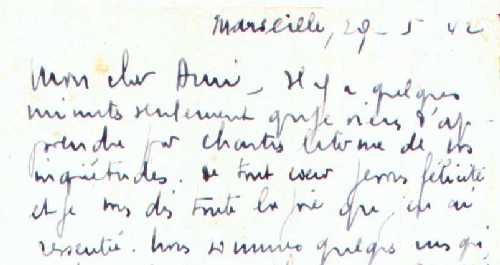 Marseille, 29 - 5 42
Mon cher Ami _ Il y a quelques
minutes seulement que je viens d'ap-
prendre par Charles la terme de vos
inquiétudes. De tout cœur je vous félicite
et je vous dis toute la joie que j'en ai
ressentie. Nous sommes quelques uns qui